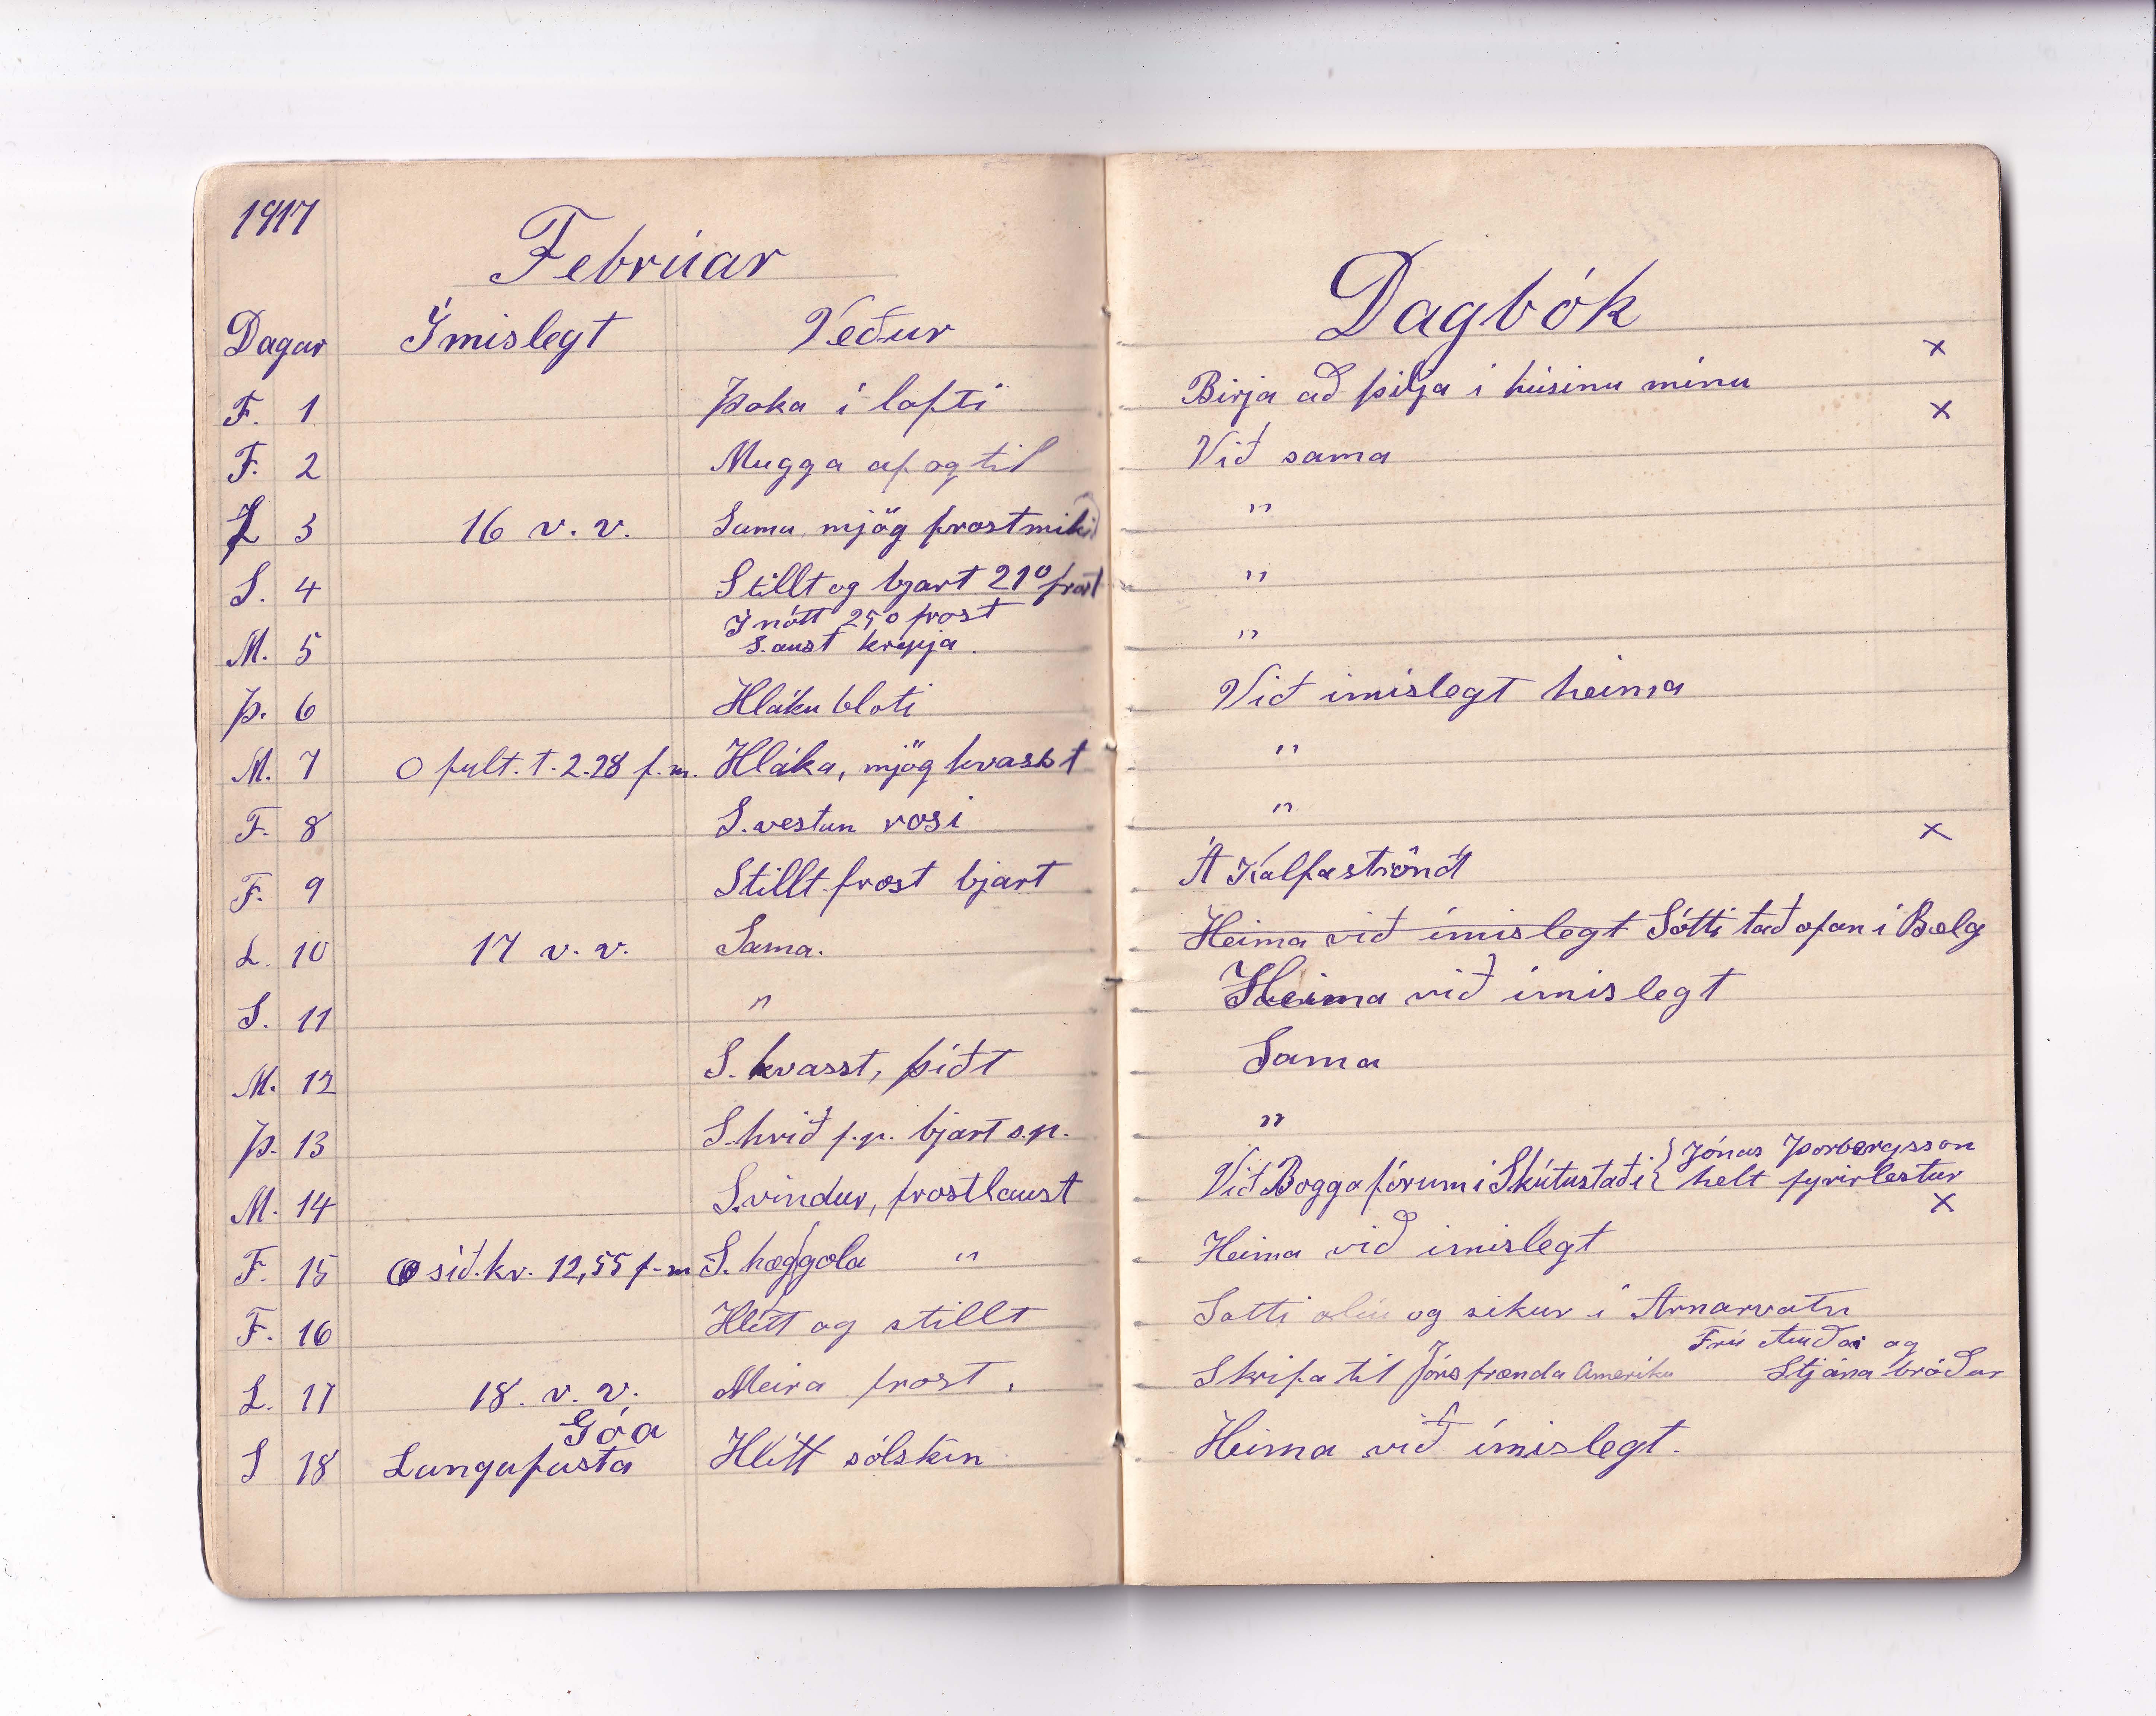 1917
Febrúar
Dagar Ýmislegt Veður
F. 1 Þoka í lofti
F. 2 Mugga af og til
L 3 16 v. v. Sama, mjög frostmiki
S. 4 Stillt og bjart 21° frost
Í nótt 25° frost
M. 5 S. aust krepja.
Þ. 6 Hláku bloti
M. 7 O fult. t. 2.28 f. m. Hláka, mjög hvasst
F. 8 S. vestan rosi
F. 9 Stillt frost bjart
L. 10 17 v. v. Sama.
S. 11 "
M. 12 S. hvasst, þiðt
Þ. 13 S. hrið f.p. bjart s.p.
M. 14 S. vindur, frostlaust
F. 15 síð. kv. 12,55 f. m S. hæggola "
F. 16 Hlítt og stillt
L. 17 18. v. v. Meira frost.
Góa
S 18 Langafasta Hlítt sólskin
Dagbók
x
Birja að þilja í húsinu mínu
x
Við sama
"
"
"
Við imislegt heima
"
"
x
Á Kalfaströnd
Heima við ímislegt Sótti tað ofan í Belg
Heima við imislegt
Sama
"
Við Bogga fórum í Skútustaði { Jónas Þorbergsson
helt fyrirlestur
x
Heima við imislegt
Sotti og sikur í Arnarvatn
Frú Auðai og
Skrifa til Jóns frænda Ameriku Stjána bróður
Heima við ímislegt.